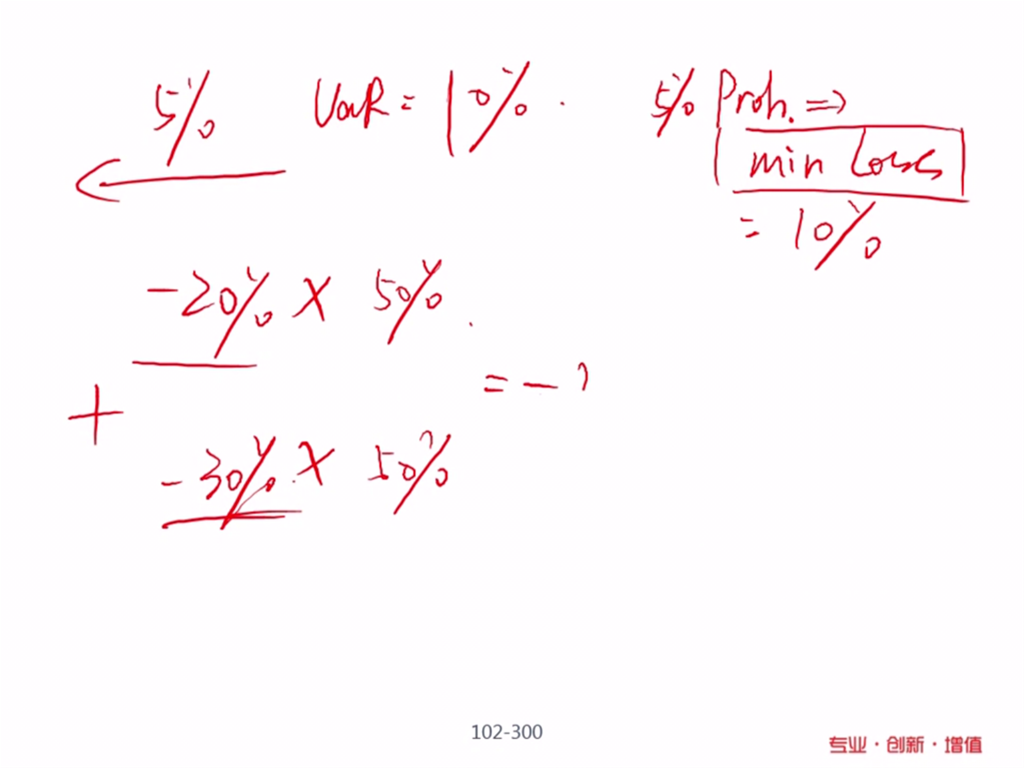 5% VaR = 10%. 5% Prob. ⇒
min Loss
= 10%
-20% × 50%.
+ = -
-30% × 50%
102-300
专业·创新·增值